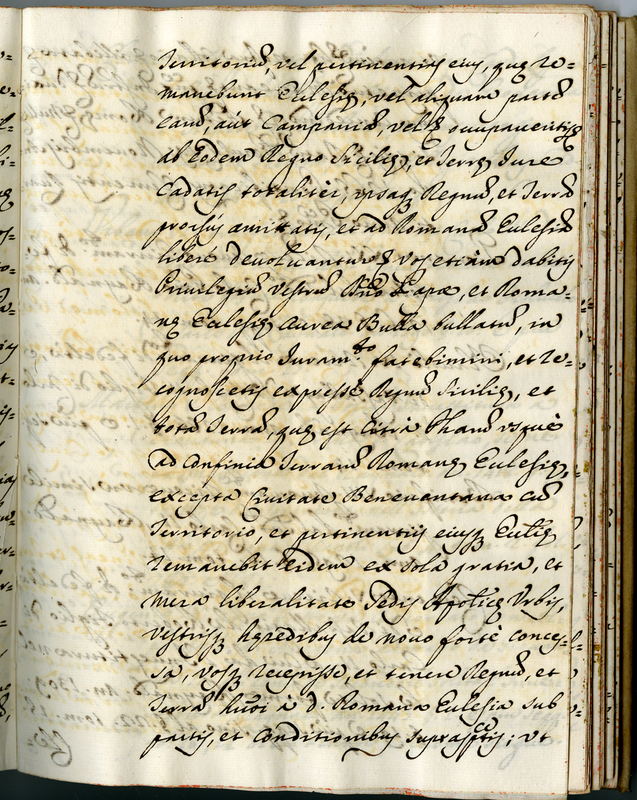 Territoriũ, vel pertinentijs eius, quę re=
manebunt Eclesię, vel aliquam partẽ
earũ, aut Campaniã, vel occupaueritis
ab Eodem Regno Sicilię, et Terrę Iure
Cadatis totaliter, ipsaq; Regnũ, et Terrã
prorsus amittatis, et ad Romanã Eclesiã
liberè deuoluantur vos etiam dabitis
Priuilegium Vestrũ Papæ, et Roma=
nę Eclesię Aurea Bulla bullatũ, in
quo proprio Iuram.to fatebimini, et re=
cognoscetis expressè Regnũ Sicilię, et
totã Terrã, quę est Citrà Pharũ vsquè
ad Confinia Terrarũ Romanę Eclesię,
excepta Ciuitate Beneuentana cũ
Territorio, et pertinentijs eiusq; Eclię
remanebit eidem ex sola gratia, et
mera liberalitate Sedis Apolicę Vrbis,
vestrisq; hęredibus de nouo fortè conces=
sa, vosq; recepisse, et tenere Regnũ, et
Terrã huõi à d. Romana Eclesia sub
pactis, et Conditionibus suprasctis; Vt